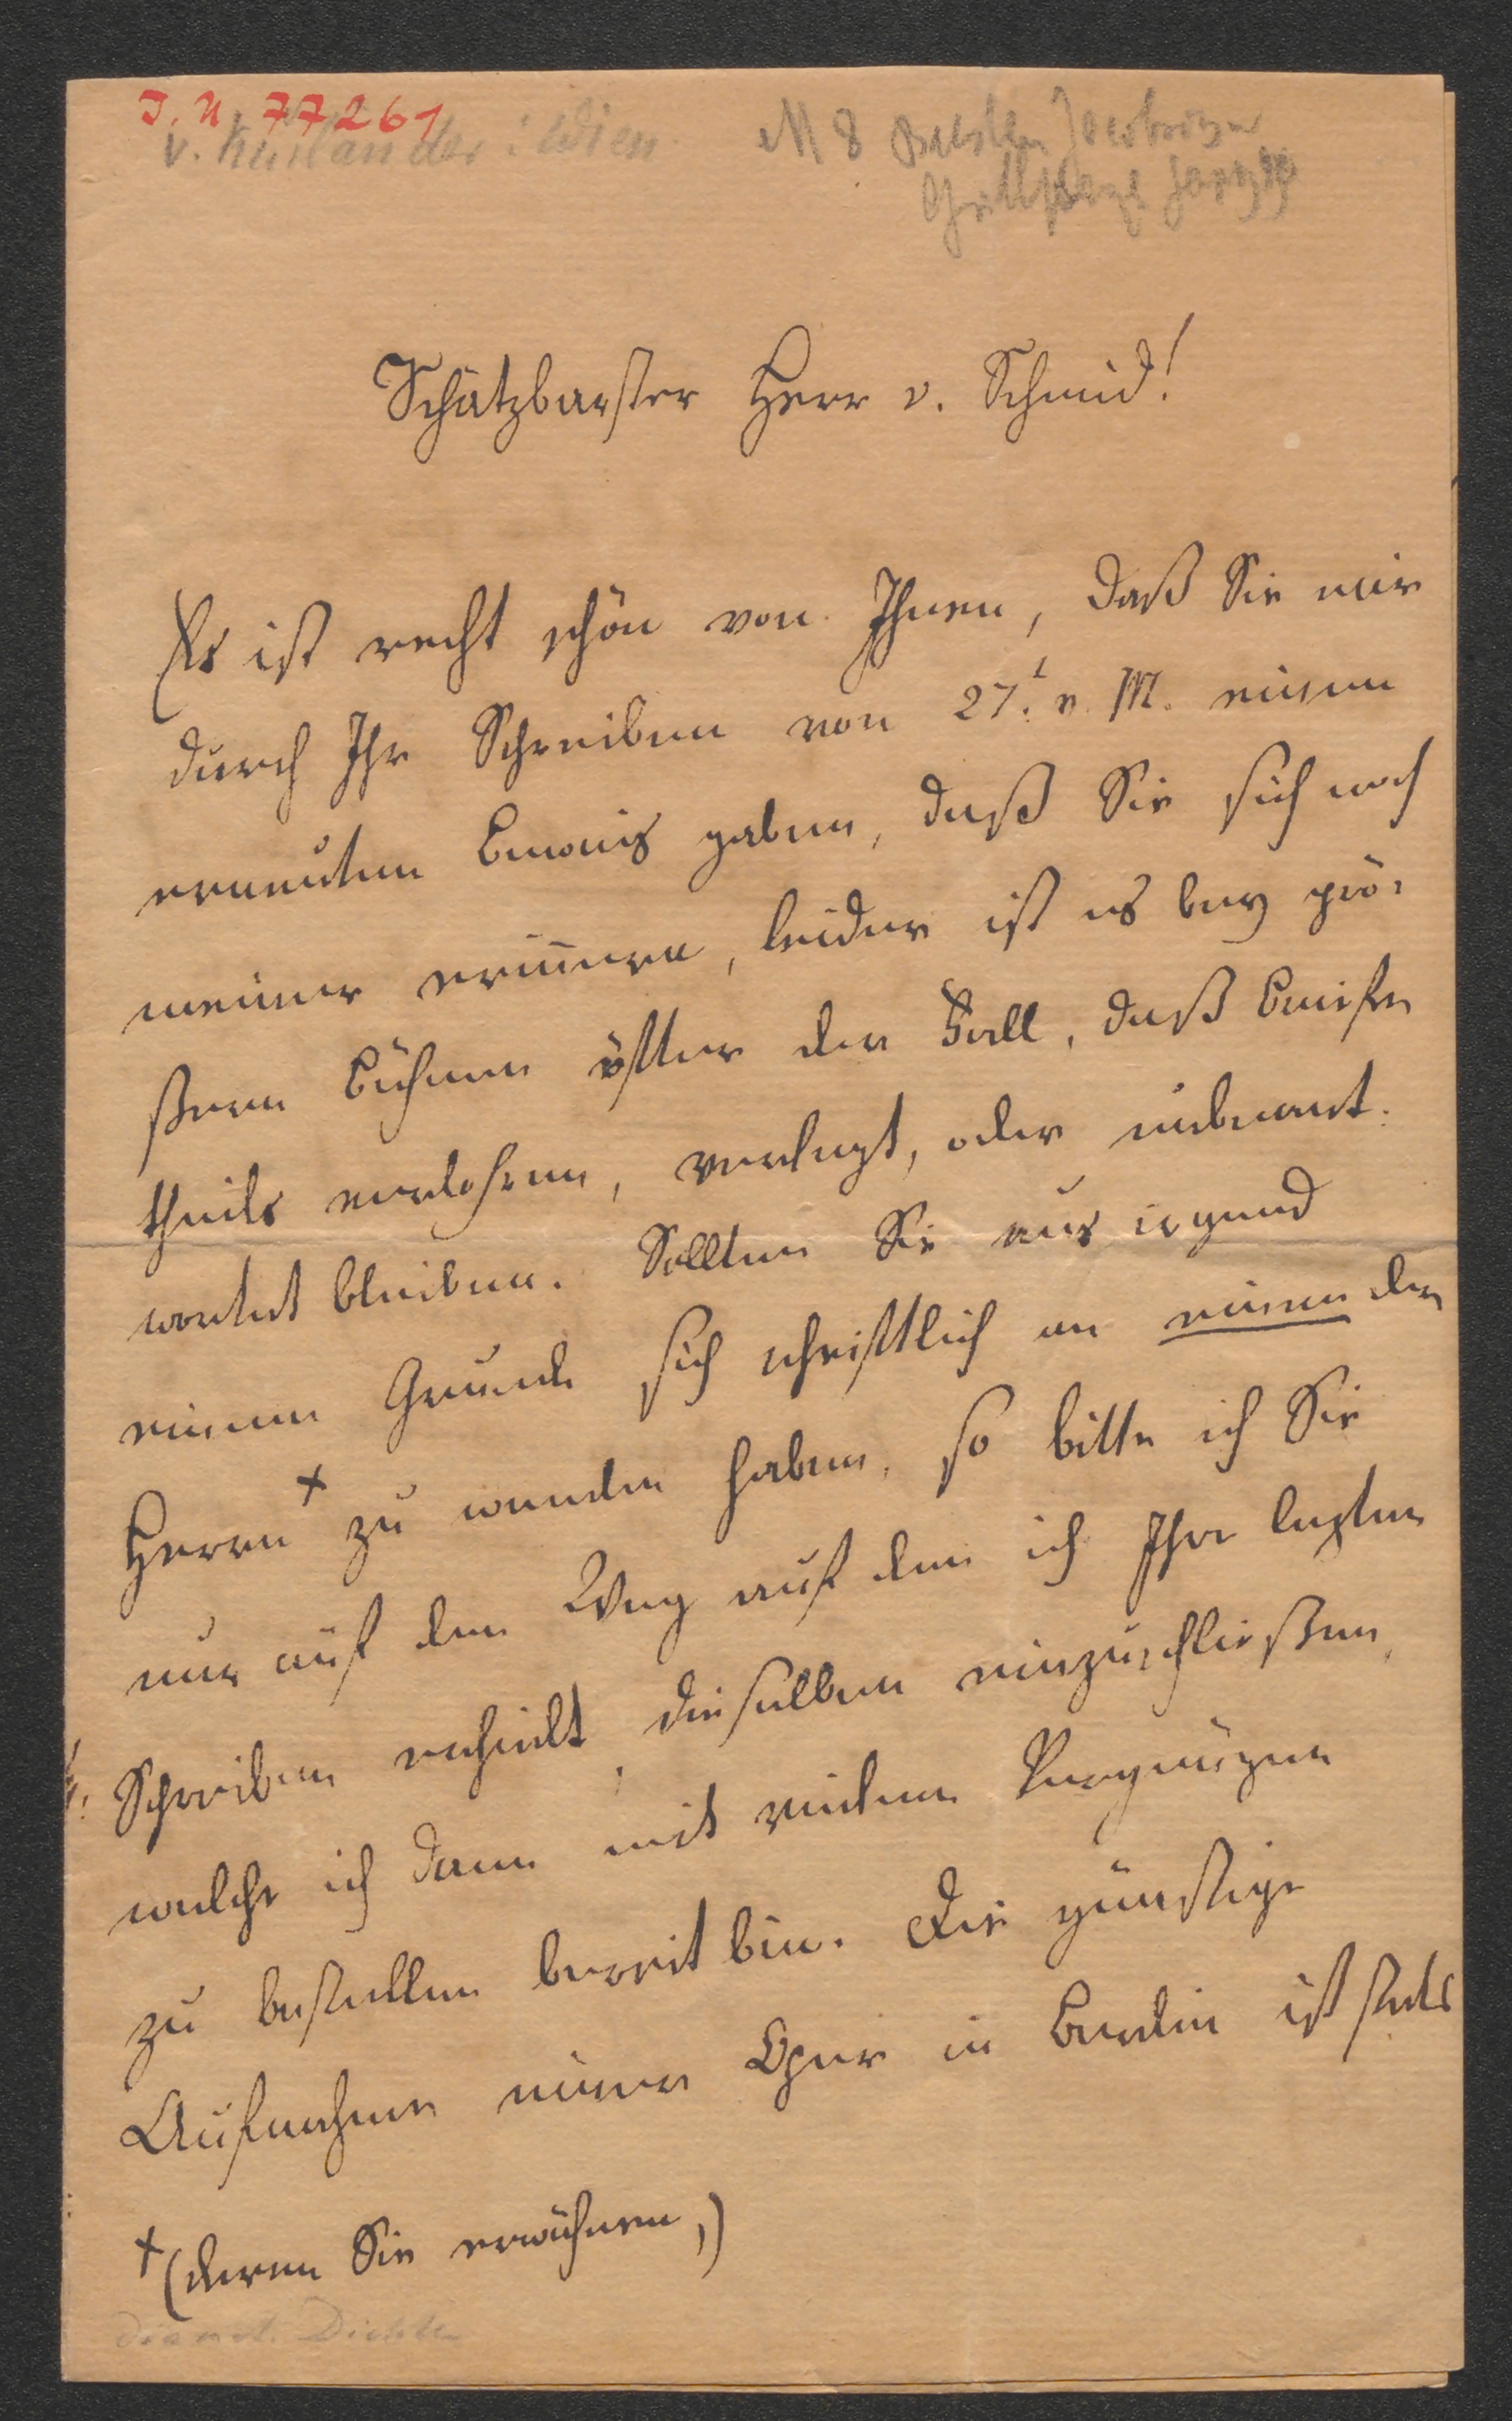 J. N. 77261
v. Kurländer : Wien
M 8
Schätzbarster Herr v. Schmid!
Es ist recht schön von Ihnen, daß Sie mir
durch Ihr Schreiben von 27.t v. M. einen
erneuten Beweis gaben, daß Sie sich noch
meiner erinnern, leider ist es bey grö-
ßern Bühnen öfter der Fall, daß Briefe
theils verlohren, verlegt, oder unbeant-
wortet bleiben. Sollten Sie aus irgend
einem Grunde sich schriftlich an einen der
Herrn + zu wenden haben, so bitte ich Sie
nur auf dem Weg auf dem ich Ihr leztes
Schreiben erhielt, dieselben einzuschließen,
welche ich dann mit vielem Vergnügen
zu bestellen bereit bin. Die günstige
Aufnahme meiner Oper in Berlin ist stets
+ (deren Sie erwähnen,)
dramat. Dichter